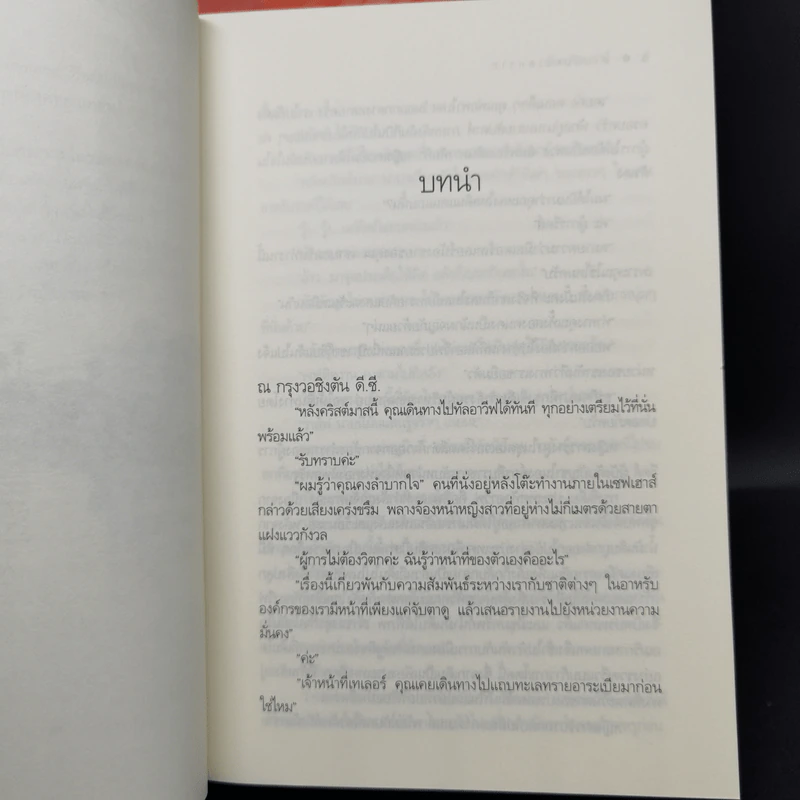 บทนำ
ณ กรุงวอชิงตัน ดี.ซี.
“หลังคริสต์มาสนี้ คุณเดินทางไปทัลอาวีฟได้ทันที ทุกอย่างเตรียมไว้ที่นั่น
พร้อมแล้ว”
“รับทราบค่ะ”
“ผมรู้ว่าคุณคงลำบากใจ” คนที่นั่งอยู่หลังโต๊ะทำงานภายในเซฟเฮาส์
กล่าวด้วยเสียงเคร่งขรึม พลางจ้องหน้าหญิงสาวที่อยู่ห่างไม่กี่เมตรด้วยสายตา
แฝงแววกังวล
“ผู้การไม่ต้องวิตกค่ะ ฉันรู้ว่าหน้าที่ของตัวเองคืออะไร”
“เรื่องนี้เกี่ยวพันกับความสัมพันธ์ระหว่างเรากับชาติต่างๆ ในอาหรับ
องค์กรของเรามีหน้าที่เพียงแค่จับตาดู แล้วเสนอรายงานไปยังหน่วยงานความ
มั่นคง”
“ค่ะ”
“เจ้าหน้าที่เทเลอร์ คุณเคยเดินทางไปแถบทะเลทรายอาระเบียมาก่อน
ใช่ไหม”